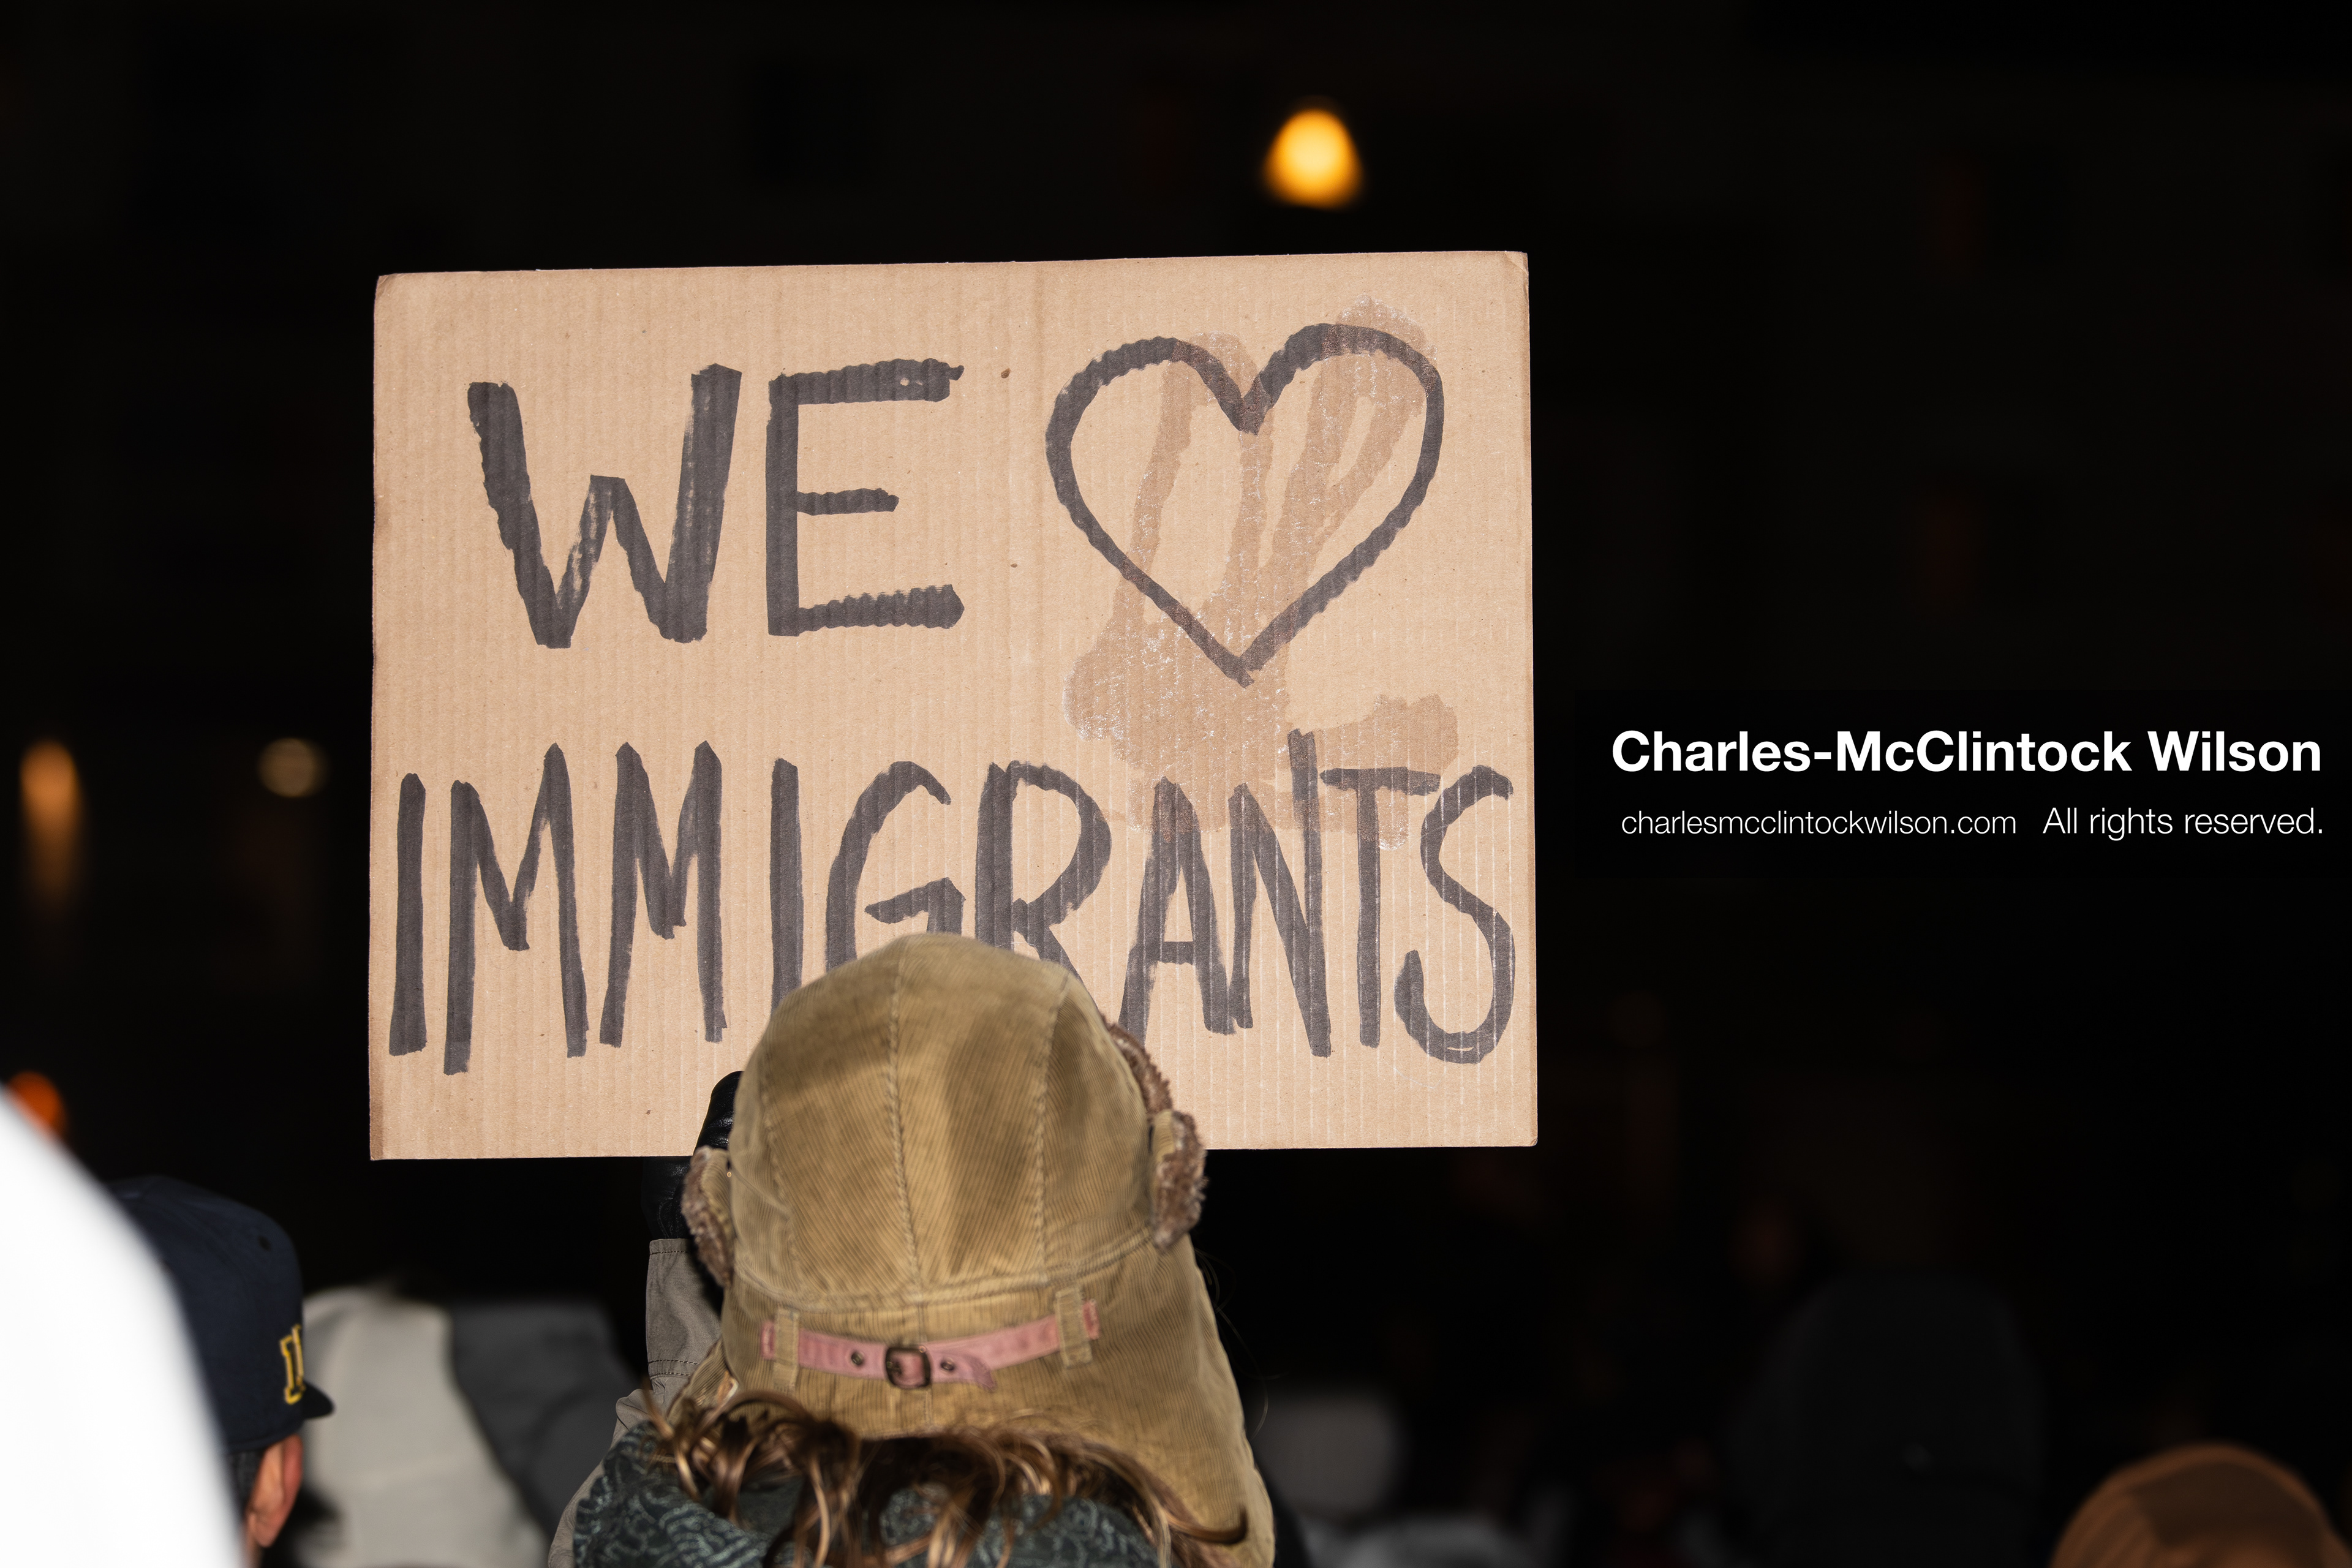 WE ♥
IMMIGRANTS
Charles-McClintock Wilson
charlesmcclintockwilson.com All rights reserved.